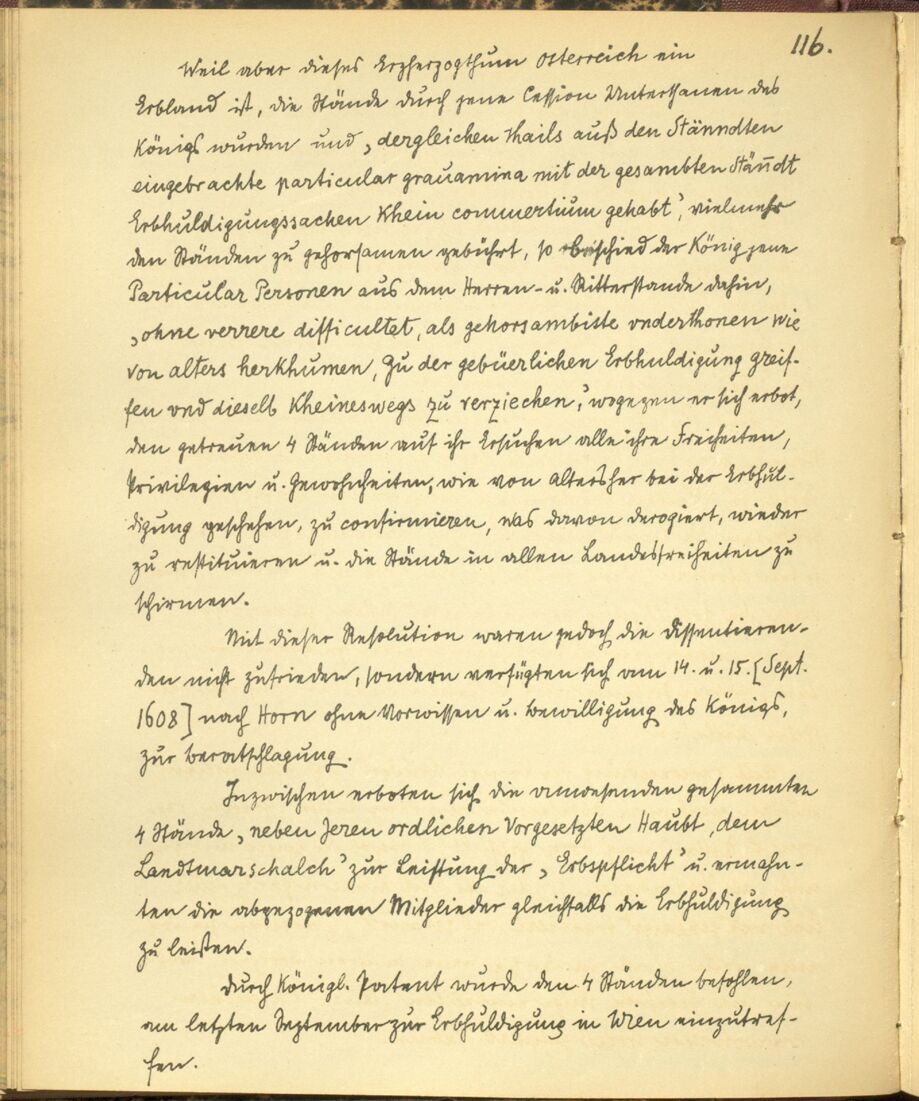 116.
Weil aber dieses Erzherzogthum Osterreich ein
Erbland ist, die Stände durch jene Cession Unterthanen des
Königs wurden und „dergleichen thails auß den Stänndten
eingebrachte particular grauamina mit der gesambten Stänndt
Erbhuldigungssachen Khein commertium gehabt”, vielmehr
den Ständen zu gehorsamen gebührt, so beschied der König jene
Particular Personen aus dem Herren- u. Ritterstande dahin,
„ohne verrere difficultet, als gehorsambiste vnderthonen wie
von alters herkhumen, Zu der gebüerlichen Erbhuldigung greif-
fen vnd dieselb Kheineswegs zu verziechen”, wogegen er sich erbot,
den getreuen 4 Ständen auf ihr Ersuchen alle ihre Freiheiten,
Privilegien u. Gewohnheiten, wie von Altersher bei der Erbhul-
digung geschehen, zu confirmieren, was davon derogiert, wieder
zu restituieren u. die Stände in allen Landesfreiheiten zu
schirmen.
Mit dieser Resolution waren jedoch die Dissentieren-
den nicht zufrieden, sondern verfügten sich am 14. u. 15. [Sept.
1608] nach Horn ohne Vorwissen u. Bewilligung des Königs,
zur Beratschlagung.
Inzwischen erboten sich die anwesenden gesammten
4 Stände „neben Jeren ordlichen Vorgesetzten Haubt, dem
Landtmarschalch” zur Leistung der „Erbspflicht” u. ermahn-
ten die abgezogenen Mitglieder gleichfalls die Erbhuldigung
zu leisten.
Durch Königl. Patent wurde den 4 Ständen befohlen,
am letzten September zur Erbhuldigung in Wien einzutref-
fen.